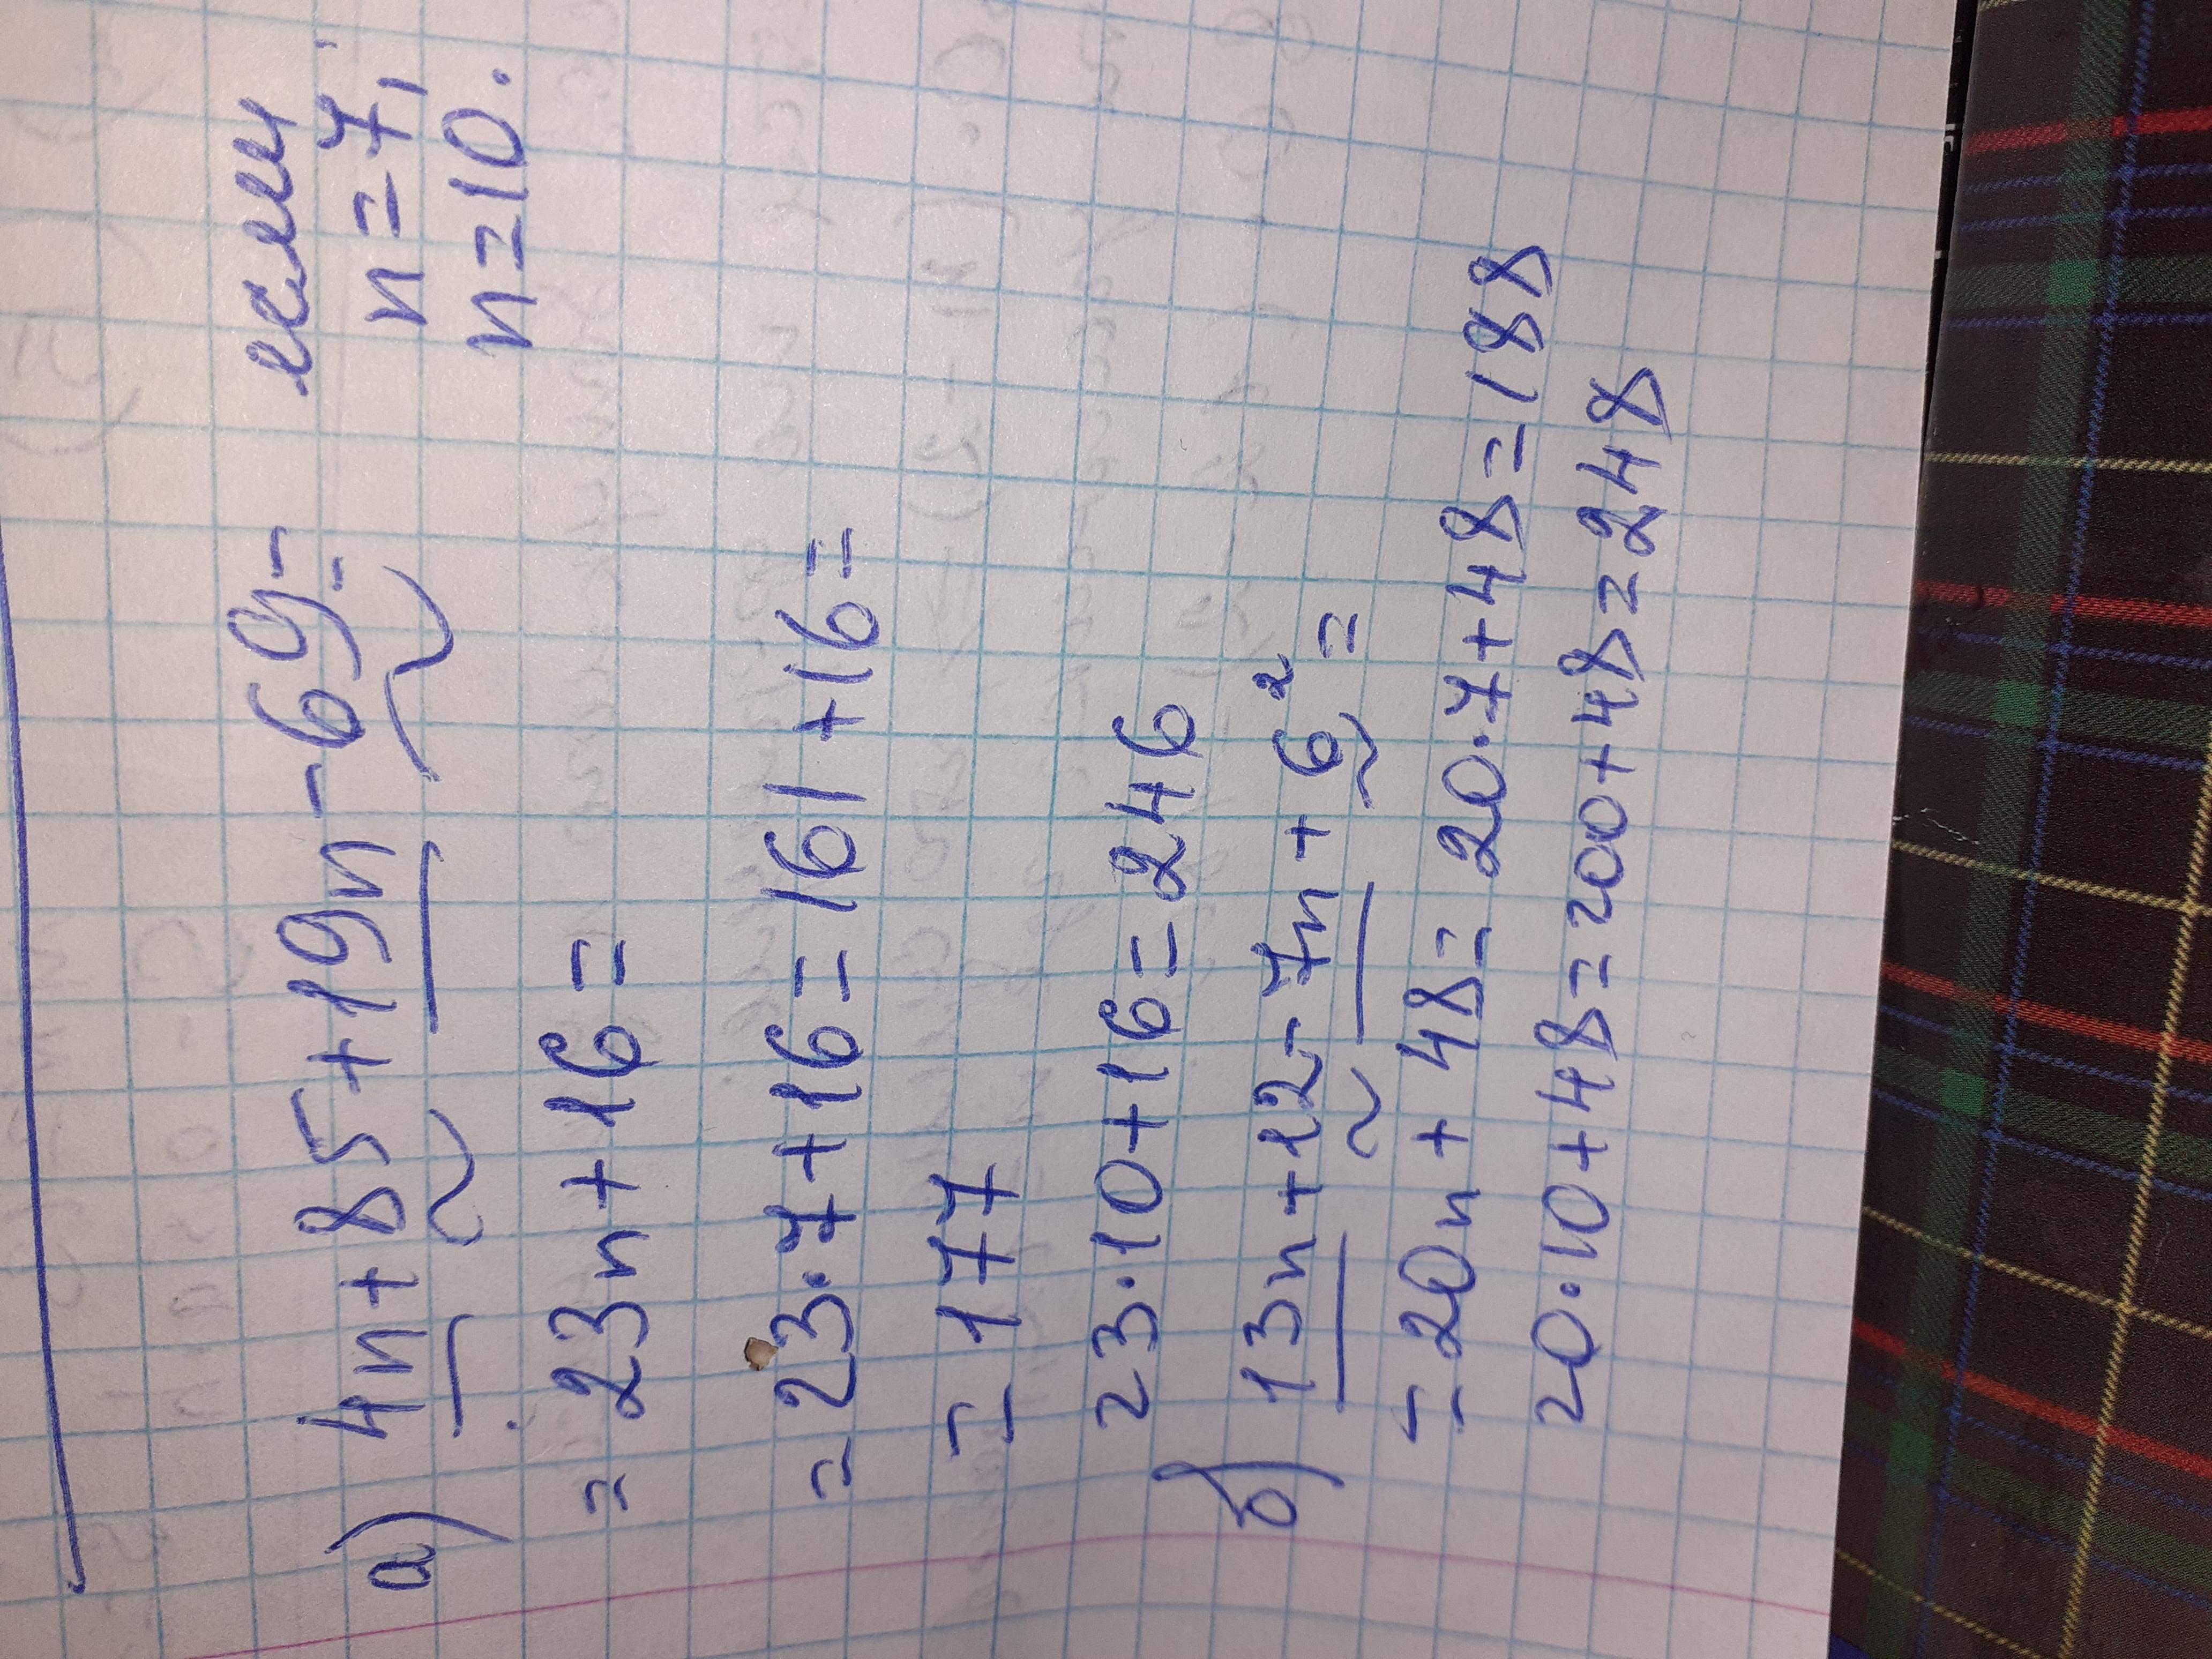 а) 4n+85+19n-69= если
n=7,
n=10.
= 23n+16=
= 23·7+16=161+16=
= 177
23·10+16=246
б) 13n+12-7n+6²=
= 20n+48=20·7+48=188
20·10+48=200+48=248